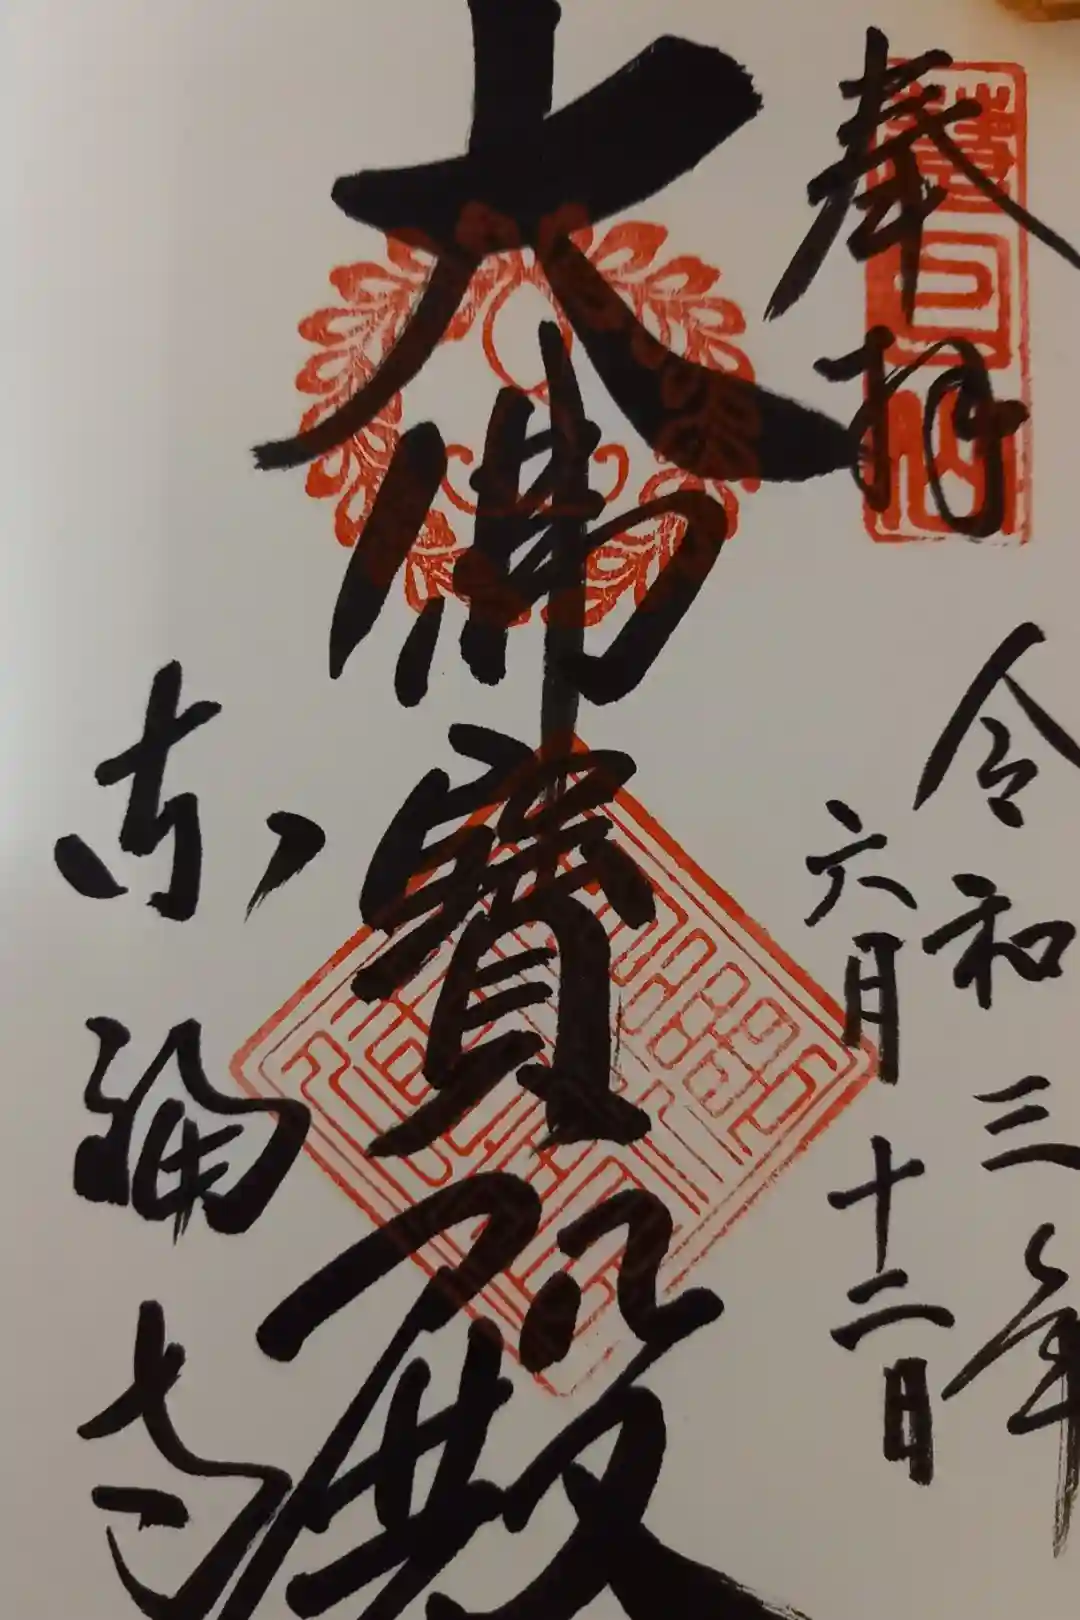 奉拝
慧日山
令和三年
六月十二日
大佛寶殿
東福寺